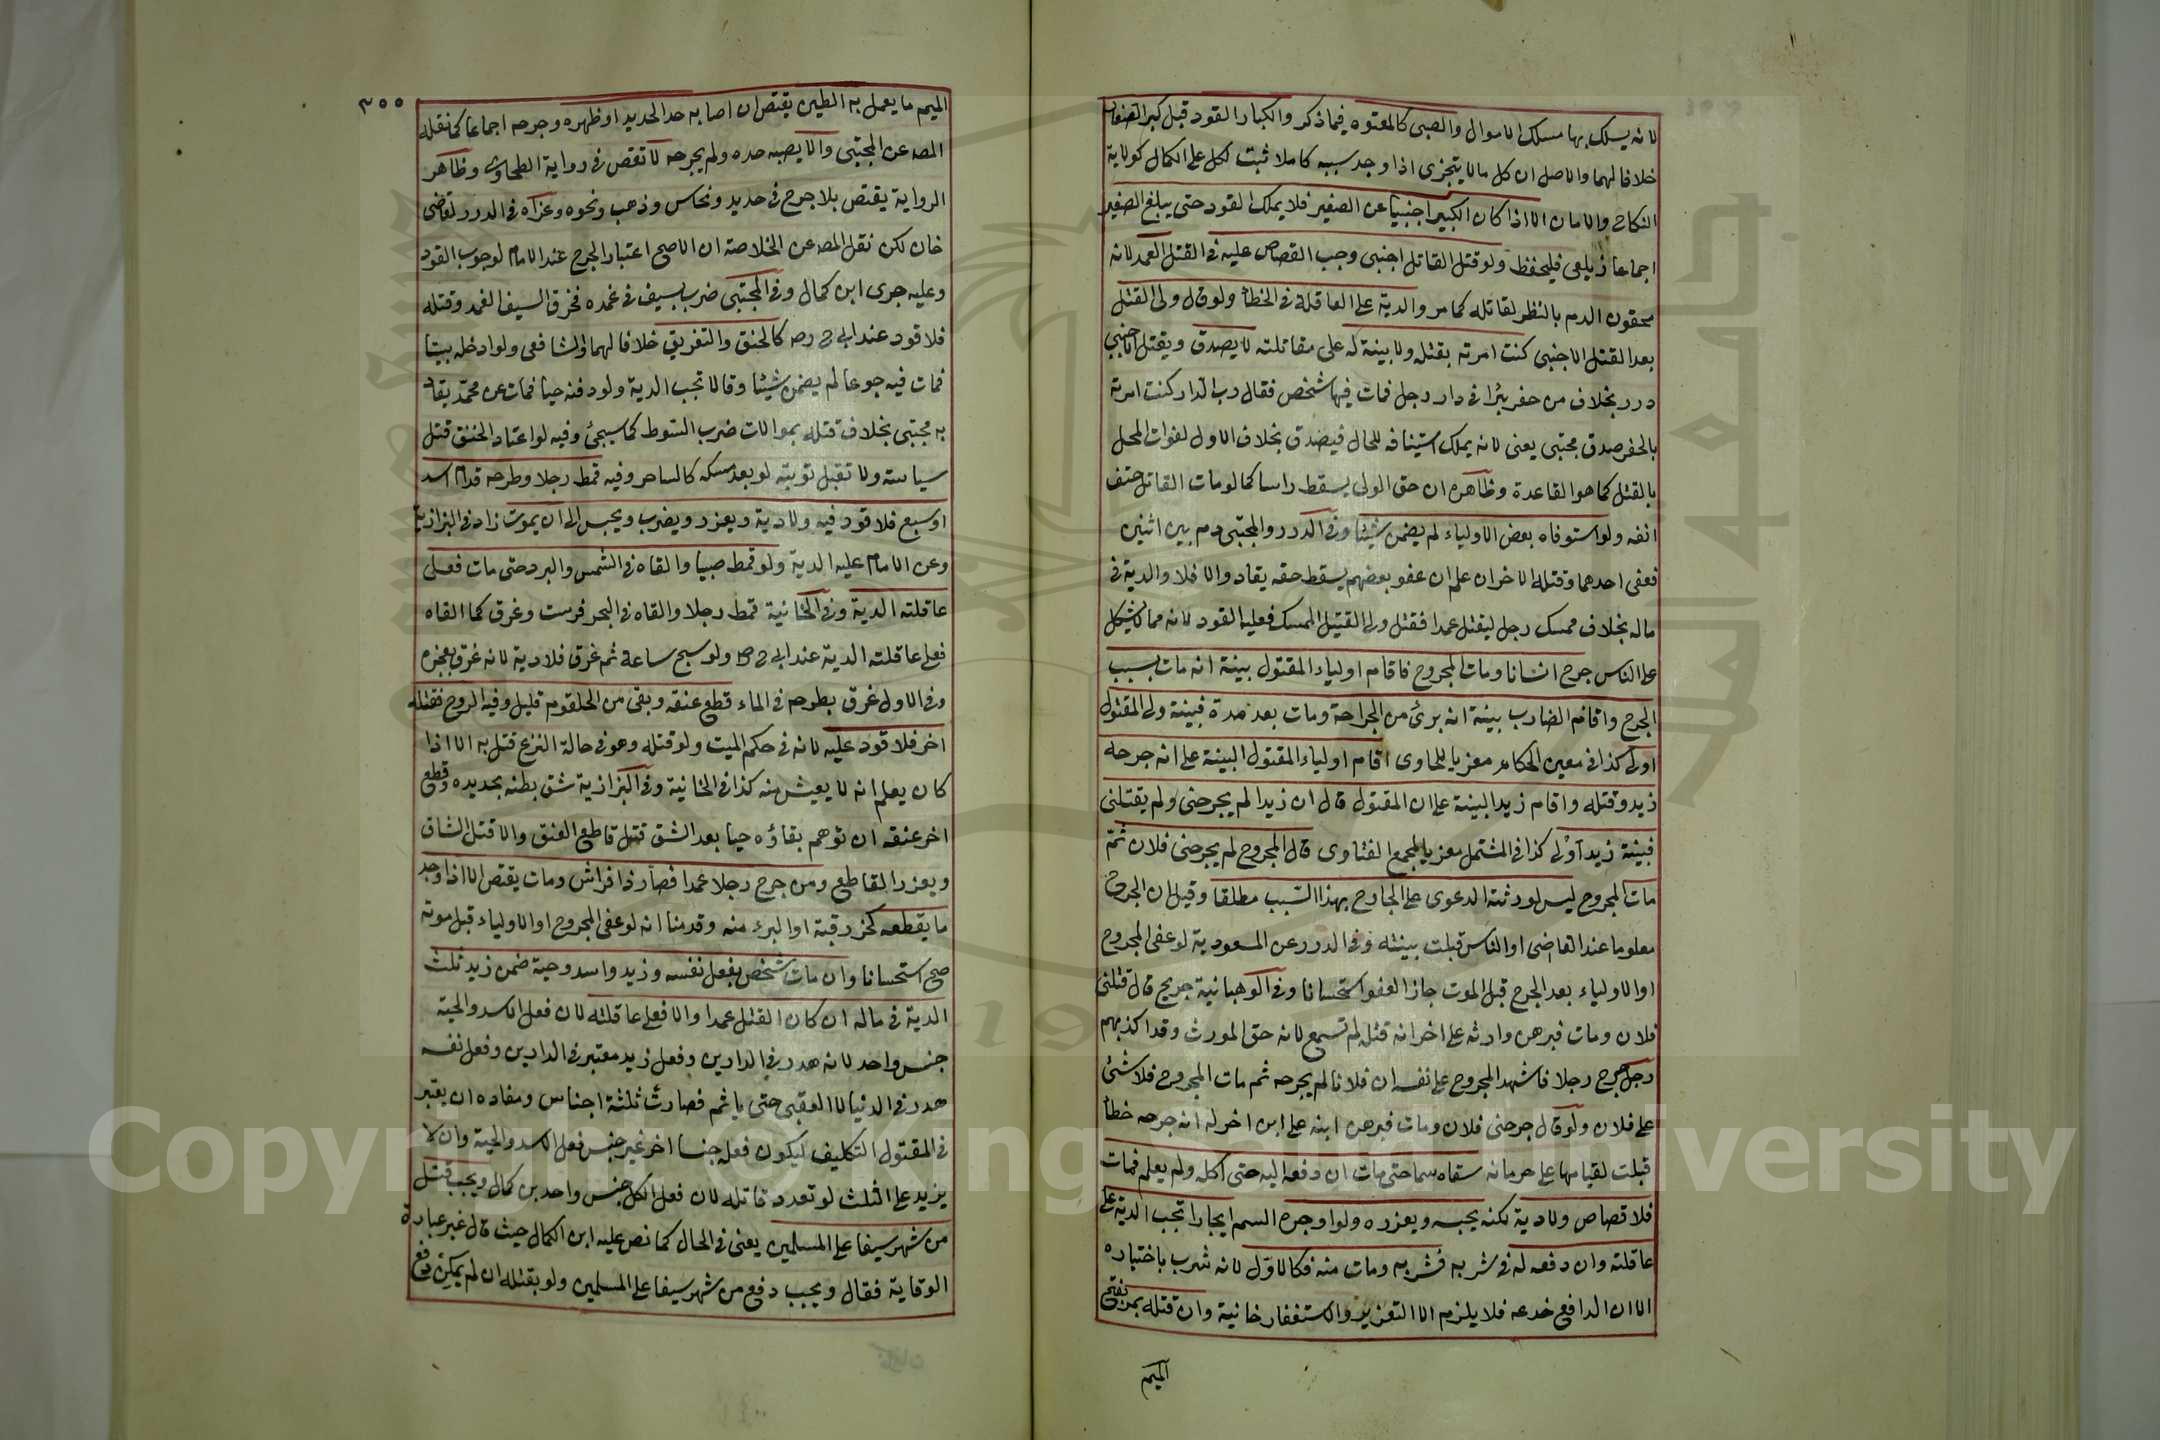 لانه يسلك بها مسلك الاموال والصبى كالمعتوه فيما ذكر والكبار القود قبل كبر الصغار
خلافا لهما والاصل ان كل مالا يتجزى اذا وجد سببه كاملا ثبت لكل على الكمال كولاية
النكاح والامان الا اذا كان الكبير اجنبيا عن الصغير فلا يملك القود حتى يبلغ الصغير
اجماعا زيلعى فليحفظ ولو قتل القاتل اجنبى وجب القصاص عليه فى القتل العمد لانه
محقون الدم بالنظر لقاتله كما مر والدية على العاقلة فى الخطأ ولو قال ولى القتل
بعد القتل الاجنبى كنت امرته بقتله ولا بينة له على مقالته لا يصدق ويقتل الاجنبى
درر بخلاف من حفر بئرا فى دار رجل فمات فيها شخص فقال رب الدار كنت امرته
بالحفر صدق مجتبى يعنى لانه يملك استينافه للحال فيصدق بخلاف الاول لفوات المحل
بالقتل كما هو القاعدة وظاهره ان حق الولى يسقط راسا كما لو مات القاتل حتف
انفه ولو استوفاه بعض الاولياء لم يضمن شيئا وفى الدرر والمجتبى دم بين اثنين
فعفى احدهما وقتله الاخر ان علم ان عفو بعضهم يسقط حقه يقاد والا فلا والدية فى
ماله بخلاف ممسك رجل ليقتل عمدا فقتل ولى القتيل الممسك فعليه القود لانه مما لا يشكل
على الناس جرح انسانا ومات المجروح فاقام اولياء المقتول بينة انه مات بسبب
الجرح واقام الضارب بينة انه برئ من الجراحة ومات بعد مدة فبينة ولى المقتول
اولى كذا فى معين الحكام معزيا للحاوى اقام اولياء المقتول البينة على انه جرحه
زيد وقتله واقام زيد البينة على ان المقتول قال ان زيدا لم يجرحنى ولم يقتلنى
فبينة زيد اولى كذا فى المشتمل معزيا لمجمع الفتاوى قال المجروح لم يجرحنى فلان ثم
مات المجروح ليس لورثته الدعوى على الجارح بهذا السبب مطلقا وقيل ان الجرح
معلوما عند القاضى او الناس قبلت بينته وفى الدرر عن المسعودية لو عفى المجروح
او الاولياء بعد الجرح قبل الموت جاز العفو استحسانا وفى الوهبانية جريح قال قتلنى
فلان ومات فبرهن وارثه على اخر انه قتله لم تسمع لانه حق المورث وقد اكذبهم
رجل جرح رجلا فاشهد المجروح على نفسه ان فلانا لم يجرحه ثم مات المجروح فلا شئ
على فلان ولو قال جرحنى فلان ومات فبرهن ابنه على ابن اخر له انه جرحه خطأ
قبلت لقيامها على حرمانه سقاه سما حتى مات ان دفعه اليه حتى اكله ولم يعلم فمات
فلا قصاص ولا دية لكنه يحبس ويعزره ولو اوجره السم ايجارا تجب الدية على
عاقلته وان دفعه له فى شربه فشربه ومات منه فكالاول لانه شرب باختياره
الا ان الدافع خدعه فلا يلزم الا التعزير والاستغفار خانية وان قتله بمر بفتح
الميم
٣٠٠
الميم ما يعمل به الطين يقتص ان اصابه حد الحديد او ظهره وجرحه اجماعا كما نقله
المص عن المجتبى والا يصبه حده ولم يجرحه لا تقص فى رواية الطحاوى وظاهر
الرواية يقتص بلا جرح فى حديد ونحاس وذهب ونحوه وعزاه فى الدرر لقاضى
خان لكن نقل المص عن الخلاصة ان الاصح اعتبار الجرح عند الامام لوجوب القود
وعليه جرى ابن كمال وفى المجتبى ضرب بسيف فى غمده فخرق السيف الغمد وقتله
فلا قود عند ابى ح رح كالخنق والتغريق خلافا لهما والشافعى ولو ادخله بيتا
فمات فيه جوعا لم يضمن شيئا وقالا تجب الدية ولو دفنه حيا فمات عن محمد يقاد
به مجتبى بخلاف قتله بموالات ضرب السوط كما سيجئ وفيه لو اعتاد الخنق قتل
سياسة ولا تقبل توبته لو بعد مسكه كالساحر وفيه قمط رجلا وطرحه قدام اسد
او سبع فلا قود فيه ولا دية ويعزر ويضرب ويحبس الى ان يموت زاد فى البزازية
وعن الامام عليه الدية ولو قمط صبيا والقاه فى الشمس والبرد حتى مات فعلى
عاقلته الدية وفى الخانية قمط رجلا والقاه فى البحر فرست وغرق كما القاه
فعلى عاقلته الدية عند ابى ح رح ولو سبح ساعة ثم غرق فلا دية لانه غرق بعجزه
وفى الاول غرق بطرحه فى الماء قطع عنقه وبقى من الحلقوم قليل وفيه الروح فقتله
اخر فلا قود عليه لانه فى حكم الميت ولو قتله وهو فى حالة النزع قتل به الا اذا
كان يعلم انه لا يعيش منه كذا فى الخانية وفى البزازية شق بطنه بحديده وقطع
اخر عنقه ان توهم بقاؤه حيا بعد الشق قتل قاطع العنق والا قتل الشاق
ويعزر القاطع ومن جرح رجلا عمدا فصار ذا فراش ومات يقتص الا اذا وجد
ما يقطعه كحز رقبة او البرء منه وقدمنا انه لو عفى المجروح او الاولياء قبل موته
صح استحسانا وان مات شخص بفعل نفسه وزيد واسد وحية ضمن زيد ثلث
الدية فى ماله ان كان القتل عمدا والا فعلى عاقلته لان فعل الاسد والحية
جنس واحد لانه هدر فى الدارين وفعل زيد معتبر فى الدارين وفعل نفسه
هدر فى الدنيا لا العقبى حتى ياثم فصارت ثلثة اجناس ومفاده ان يعتبر
فى المقتول التكليف ليكون فعله جنسا اخر غير جنس فعل الاسد والحية وان لا
يزيد على الثلث لو تعدد قاتله لان فعل الكل جنس واحد بن كمال ويجب قتل
من شهر سيفا على المسلمين يعنى فى الحال كما نص عليه ابن الكمال حيث قال غير عبارة
الوقاية فقال ويجب دفع من شهر سيفا على المسلمين ولو بقتله ان لم يمكن دفع
Copyright © King Saud University